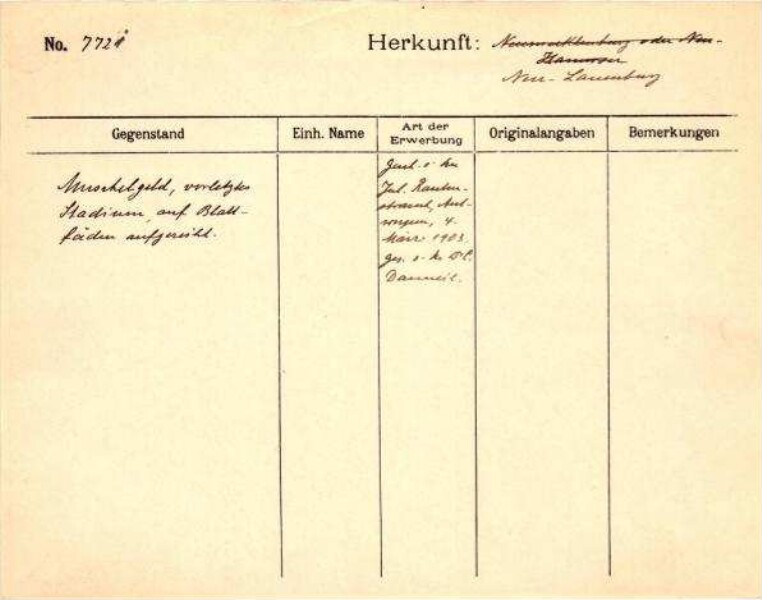 No. 7721
Herkunft: Neumecklenburg oder Neu-
Hannover
Neu-Lauenburg
Gegenstand
Einh. Name
Art der
Erwerbung
Originalangaben
Bemerkungen
Muschelgeld, vorletztes
Stadium, auf Blatt-
fäden aufgereiht.
Jul. Rauten-
strauch, Ant-
werpen, 4.
März 1903.
Danneil.